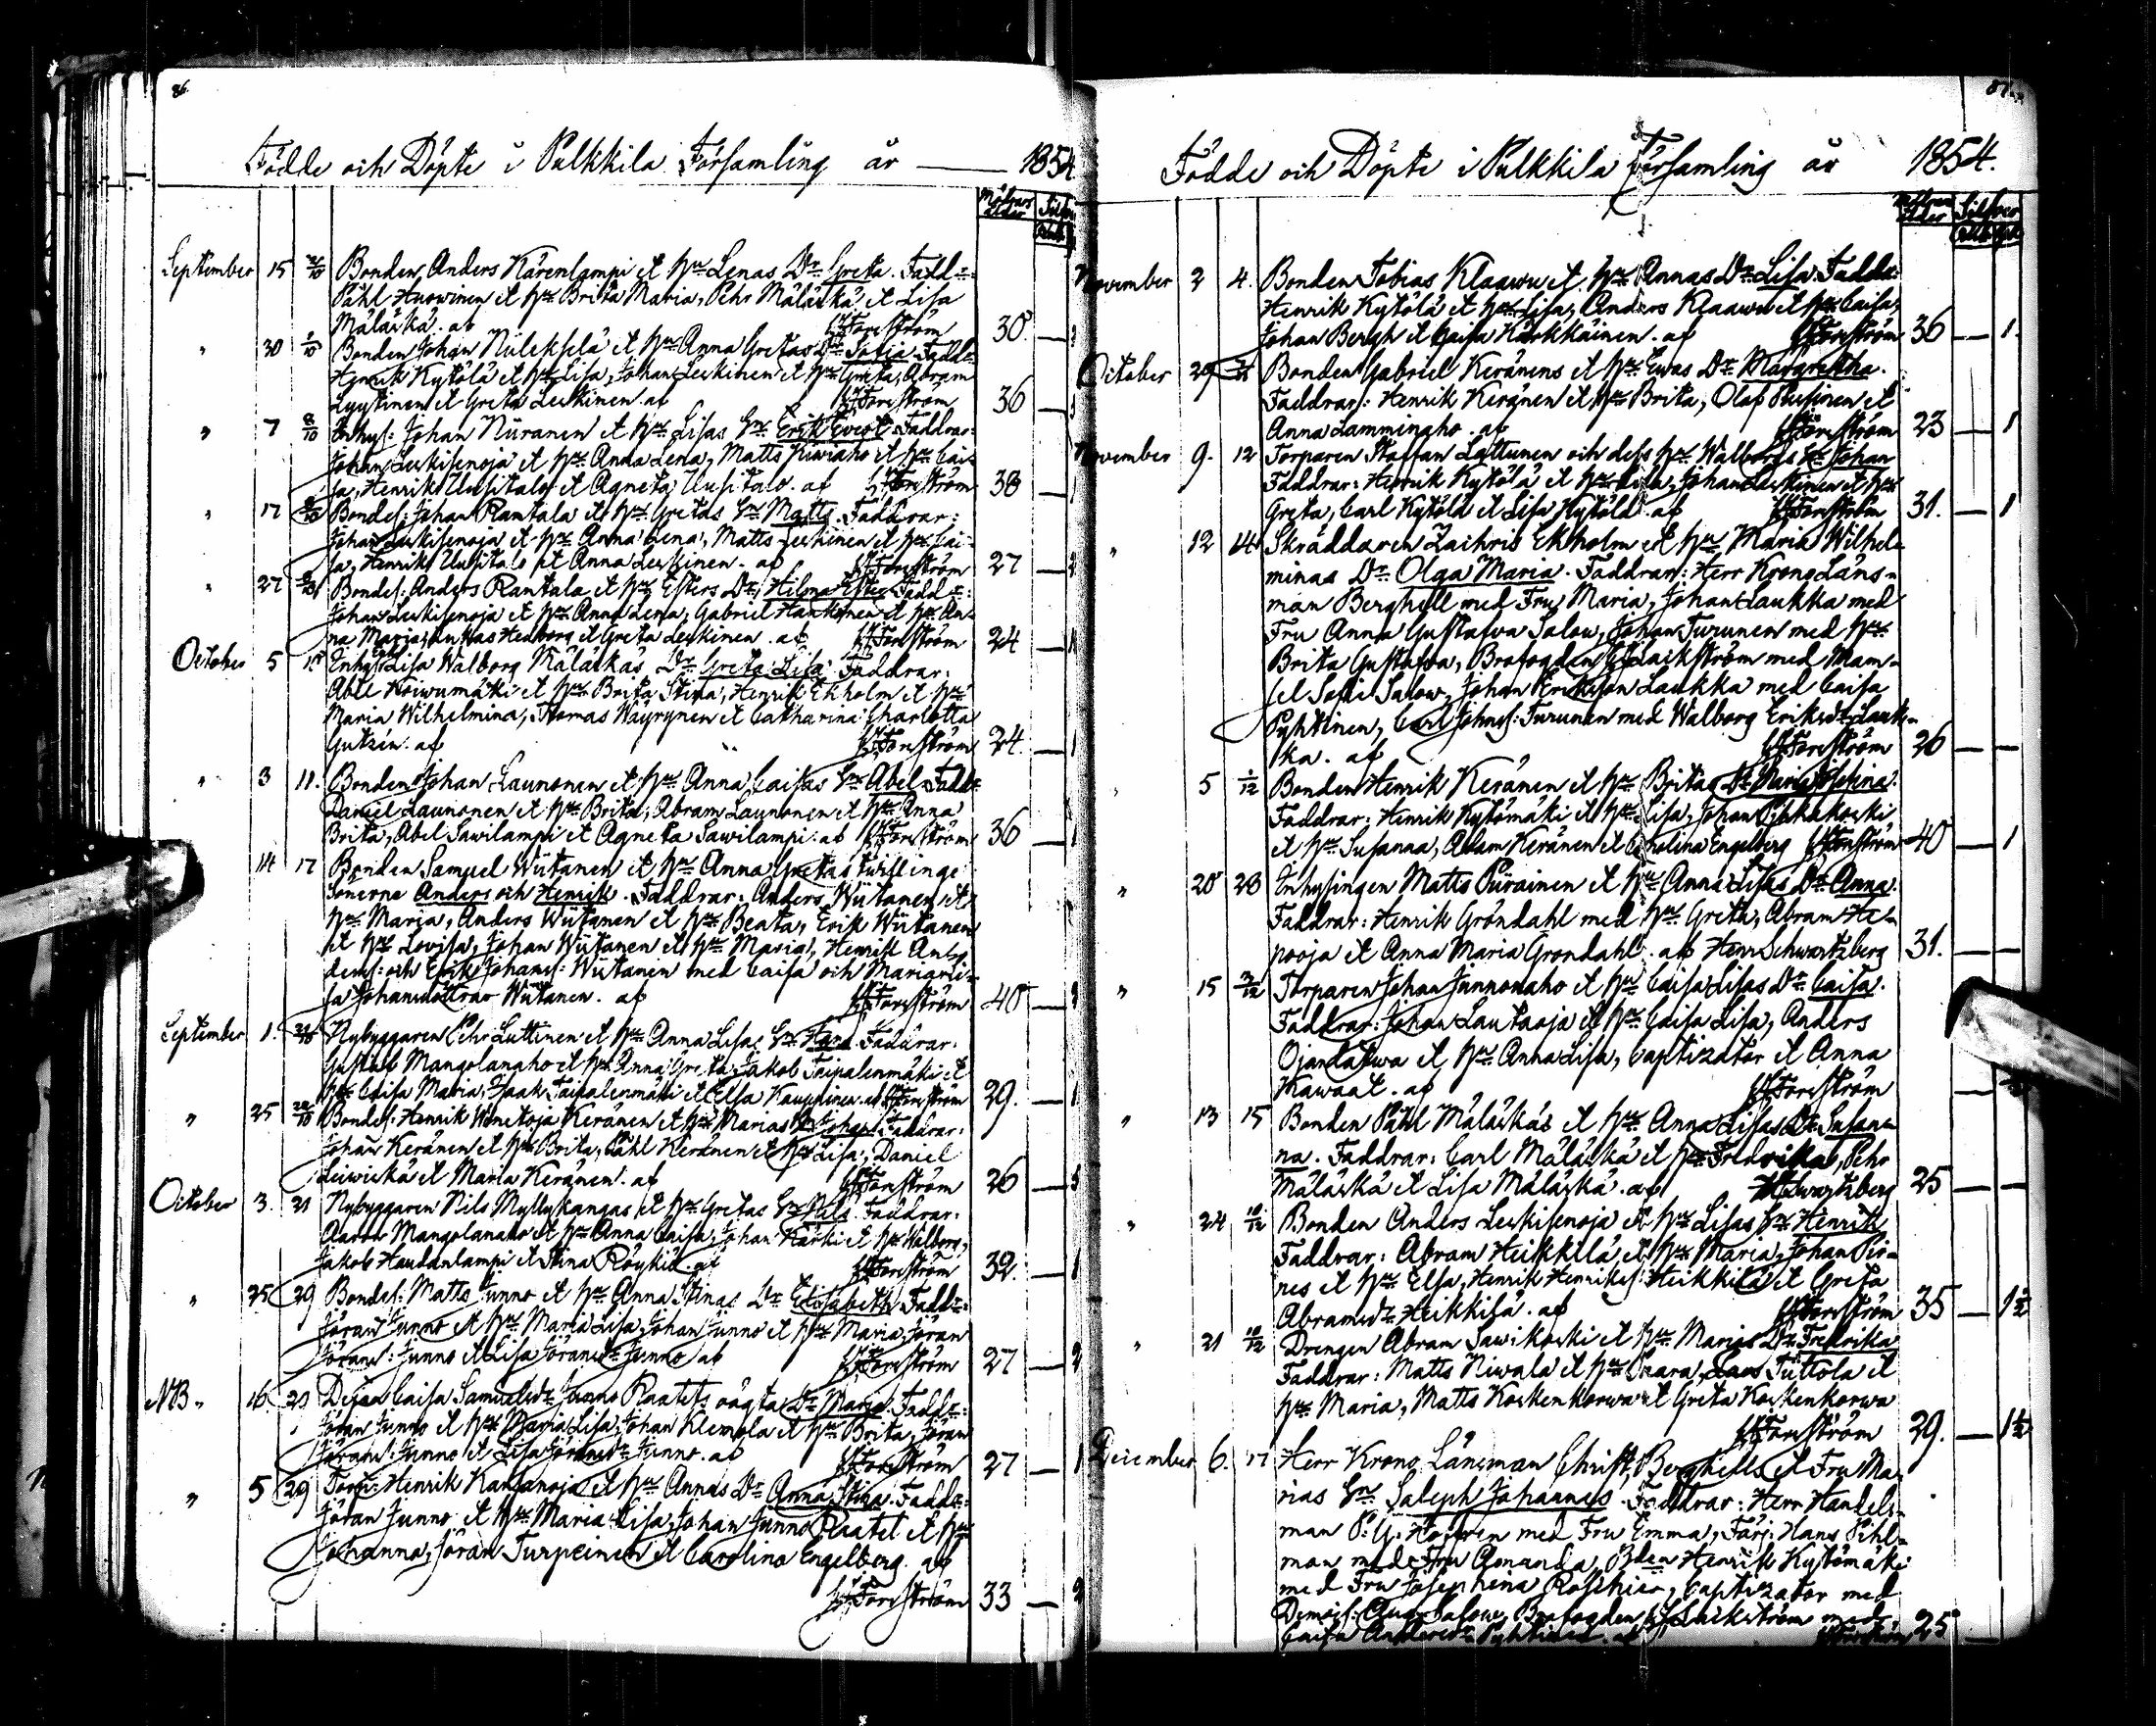 86.
Födde och Döpte i Pulkkila Församling år 1854
Mödrars ålder Silfver
September 15 Bonden Anders Kärenlampi et Hu Lenas Dr Greta. Fadd:
Påhl Huowinen et Hu Brita Maria, Pehr Mäläskä et Lisa
Mäläskä. af Forsström 30.
" 30 Bonden Johan Niilekselä et Hu Anna Gretas Dr Sofia. Fadd:
Henrik Kytölä et Hu Lisa, Johan Leskinen et Hu Greta, Abram
Lyytinen et Greta Leskinen. af Forsström 36
" 7 8/10 Inhys: Johan Niiranen et Hu Lisas Sn Erik Evert. Faddrar:
Johan Leskisenoja et Hu Anna Lena, Matts et Hu Cai-
sa, Henrik Uusitalo et Agneta Uusitalo. af Forsström 38
" 17 Bondes: Johan Rantala et Hu Gretas Sn Matts. Faddrar:
Johan Leskisenoja et Hu Anna Lena, Matts Leskinen et Hu Cai-
sa, Henrik Uusitalo et Anna Leskinen. af Forsström 27
" 27 Bondes: Anders Rantala et Hu Esters Dr Hilma Ester. Fadd:
Johan Leskisenoja et Hu Anna Lena, Gabriel Hankonen et Hu An-
na Maria, Hedborg et Greta Leskinen. af Forsström 24
October 5 15 Inhys: Lisa Walborg Mäläskäs Dr Greta Lisa. Faddrar:
Abel Koiwumäki et Hu Brita Stina, Henrik Ekholm et Hu
Maria Wilhelmina, Thomas Wäyrynen et Catharina Charlotta
Gutzén. af Forsström 24
" 3 11. Bonden Johan Launonen et Hu Anna Caisas Sn Abel. Fadd:
Daniel Launonen et Hu Brita, Abram Launonen et Hu Anna
Brita, Abel Sawilampi et Agneta Sawilampi. af Forsström 36
14 17 Bonden Samuel Wiitanen et Hu Anna Gretas twillinge
Sönerne Anders och Henrik. Faddrar: Anders Wiitanen et
Hu Maria, Anders Wiitanen et Hu Beata, Erik Wiitanen
et Hu Lovisa, Johan Wiitanen et Hu Maria, Henrik An-
ders: och Erik Johans: Wiitanen med Caisa och Maria Li-
sa Johansdöttrar Wiitanen. af Forsström 40
September 1. Nybyggaren Pehr Luttinen et Hu Anna Lisas Sn Hans. Faddrar:
Gustaf Mangolanaho et Hu Anna Greta, Jakob Taipalenmäki et
Hu Caisa Maria, Isaak Taipalenmäki et Elsa Kauppinen. af Forsström 29.
" 25 22/10 Bondes: Henrik Keränen et Hu Marias Sn Johan. Faddrar:
Johan Keränen et Hu Brita, Påhl Keränen et Hu Lisa, Daniel
Leiwiskä et Maria Keränen. af Forsström 26
October 3. 21 Nybyggaren Nils Myllykangas et Hu Gretas Sn Nils. Faddrar:
Aaron Mangolanaho et Hu Anna Caisa, Johan Kärki et Hu Walborg,
Jakob Haudanlampi et Stina Röykiö. af Forsström 32.
" 25 29 Bondes: Matts Junno et Hu Anna Stinas Dr Elisabeth. Fadd:
Jöran Junno et Hu Maria Lisa, Johan Junno et Hu Maria, Jöran
Jörans: Junno et Lisa Jöransdr Junno af Forsström 27
NB " 16. 29 Dejan Caisa Samuelsdr Junno Raatets oägta Dr Maria. Fadd:
Jöran Junno et Hu Maria Lisa, Johan Klemola et Hu Brita, Jöran
Jörans: Junno et Lisa Jöransdr Junno. af Forsström 27
" 5 29 Torp: Henrik Kansanoja et Hu Annas Dr Anna Stina. Fadd:
Jöran Junno et Hu Maria Lisa, Johan Junno Raatet et Hu
Johanna, Jöran Turpeinen et Carolina Engelberg. af
Forsström 33
87.
Födde och Döpte i Pulkkila Församling år 1854.
Mödrars ålder Silfver
November 2 4. Bonden Tobias Klaawu et Hu Annas Dr Lisa. Faddr:
Henrik Kytölä et Hu Lisa, Anders Klaawu et Hu Caisa,
Johan Bergh et Caisa Harkkäinen. af Forsström 36 — 1.
October 29 Bonden Gabriel Keränens et Hu Ewas Dr Margaretha.
Faddrar: Henrik Keränen et Hu Brita, Olof Pusinen et
Anna Lamminaho. af Forsström 23 — 1
November 9. 12 Torparen Staffan Lattunen och dess Hu Walborgs Sn Johan
Faddrar: Henrik Kytölä et Hu Lisa, Johan Leskinen et Hu
Greta, Carl Kytölä et Lisa Kytölä. af Forsström 31. — 1
" 12 14 Skräddaren Zachris Ekholm et Hu Maria Wilhel-
minas Dr Olga Maria. Faddrar: Herr Krono Läns-
man Berghell med Fru Maria, Johan Laukka med
Fru Anna Gustafva Salow, Johan Turunen med Hu
Brita Gustafva, Brofogden Lackström med Mam-
sel Sofie Salow, Johan Eriksson Laukka med Caisa
Pyhtinen, Carl Johns: Turunen med Walborg Eriksdr Lauk-
ka. af Forsström 26 — —
" 5 1/12 Bonden Henrik Keränen et Hu Britas Dr Maria Josefina.
Faddrar: Henrik Kytömäki et Hu Lisa, Johan Pihkakoski
et Hu Susanna, Adam Keränen et Carolina Engelberg Forsström 40 — 1
" 20 23 Inhysingen Matts Piirainen et Hu Anna Lisas Dr Anna.
Faddrar: Henrik Gröndahl med Hu Greta, Abram He-
pooja et Anna Maria Gröndahl. af Herr Schwartzberg 31. — —
" 15 3/12 Torparen Johan Junnonaho et Hu Caisa Lisas Dr Caisa.
Faddrar: Johan Lautaoja et Hu Caisa Lisa, Anders
Ojanlatwa et Hu Anna Lisa, Captizator et Anna
Kawaat. af Forsström
" 13 15 Bonden Påhl Mäläskäs et Hu Anna Lisas Dr Susan-
na. Faddrar: Carl Mäläskä et Hu Fredrika, Pehr
Mäläskä et Lisa Mäläskä. af Schwartzberg 25 — —
" 24 10/12 Bonden Anders Leskisenoja et Hu Lisas Sn Henrik
Faddrar: Abram Heikkilä et Hu Maria, Johan Pir-
nes et Hu Elsa, Henrik Henriks: Heikkilä et Greta
Abramsdr Heikkilä. af Forsström 35 — 1½
" 21 10/12 Drengen Abram Sawikoski et Hu Marias Dr Fredrika
Faddrar: Matts Niwala et Hu Saara, Lars Tuttola et
Hu Maria, Matts Koskenkorwa et Greta Koskenkorwa
Forsström 29. — 1½
December 6. 17 Herr Krono Länsman Christ. Berghells et Fru Ma-
rias Sn Saleph Johannes. Faddrar: Herr Handels-
man P. G. Hoffrén med Fru Emma, Färj: Hans Pihl-
man med Fru Amanda, Bden Henrik Kytömäki
med Fru Josephina Roschier, Captizator med
Demois: Aug. Salow, Brofogden Lackström med
Caisa Andersdr Pyhtinen. af Forsström 25